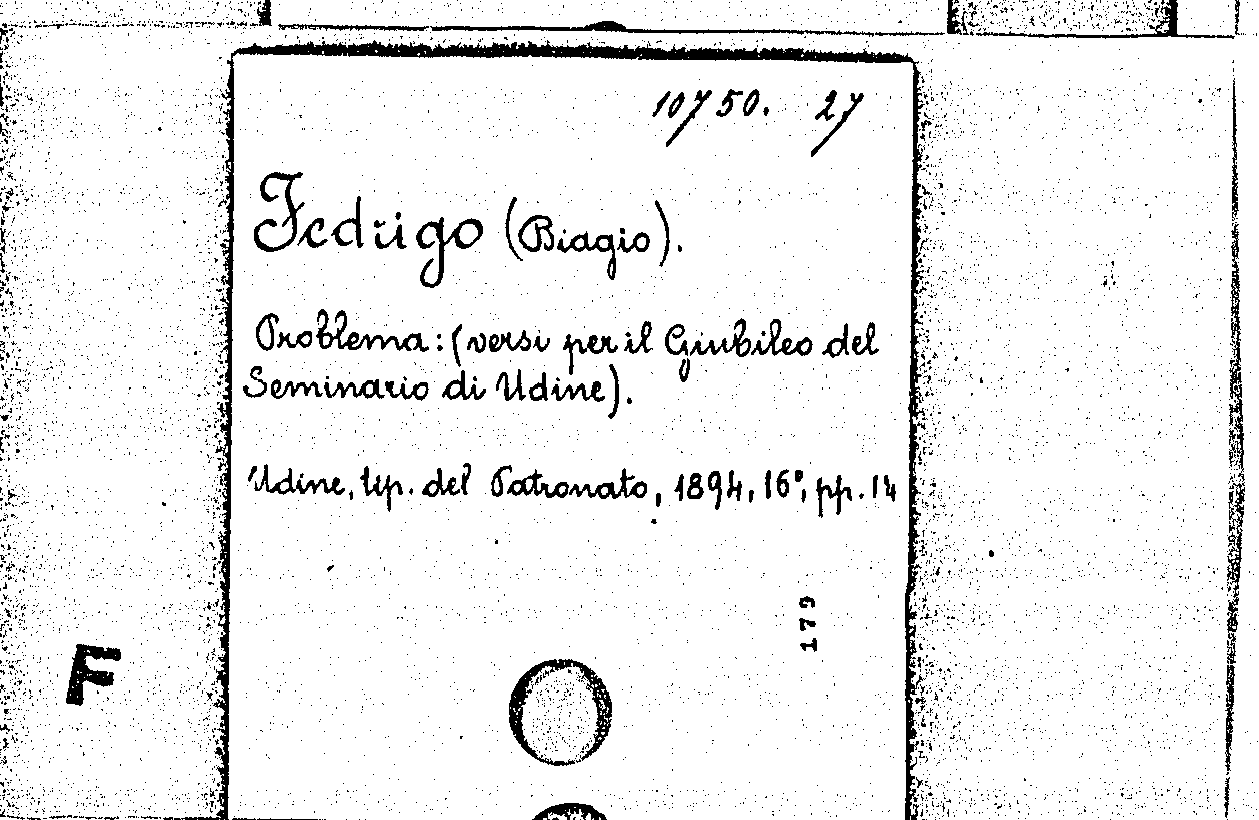 10750. 27
Fedrigo (Biagio).
Problema: (versi per il Giubileo del
Seminario di Udine).
Udine, tip. del Patronato, 1894, 16°, pp. 14
179
F